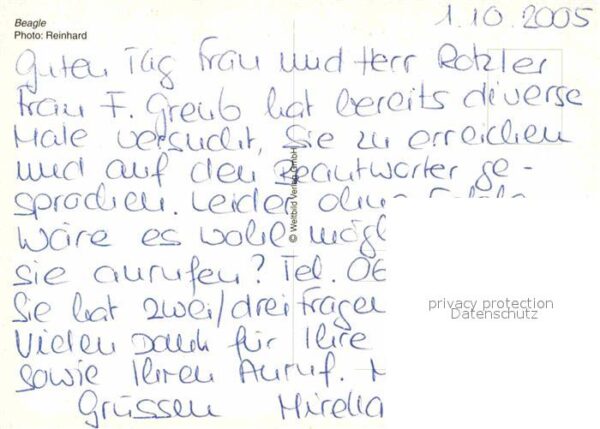 Beagle
Photo: Reinhard
1.10.2005
Guten Tag Frau und Herr Rotzler
Frau F. Greub hat bereits diverse
Male versucht, Sie zu erreichen
und auf den Beantworter ge-
sprochen. Leider ohne
Wäre es wohl mögl
sie anrufen? Tel. 06
Sie hat zwei/drei Fragen
Vielen Dank für Ihre
sowie Ihren Anruf. M
Grüssen Mirella
© Weltbild Verlag GmbH
privacy protection
Datenschutz